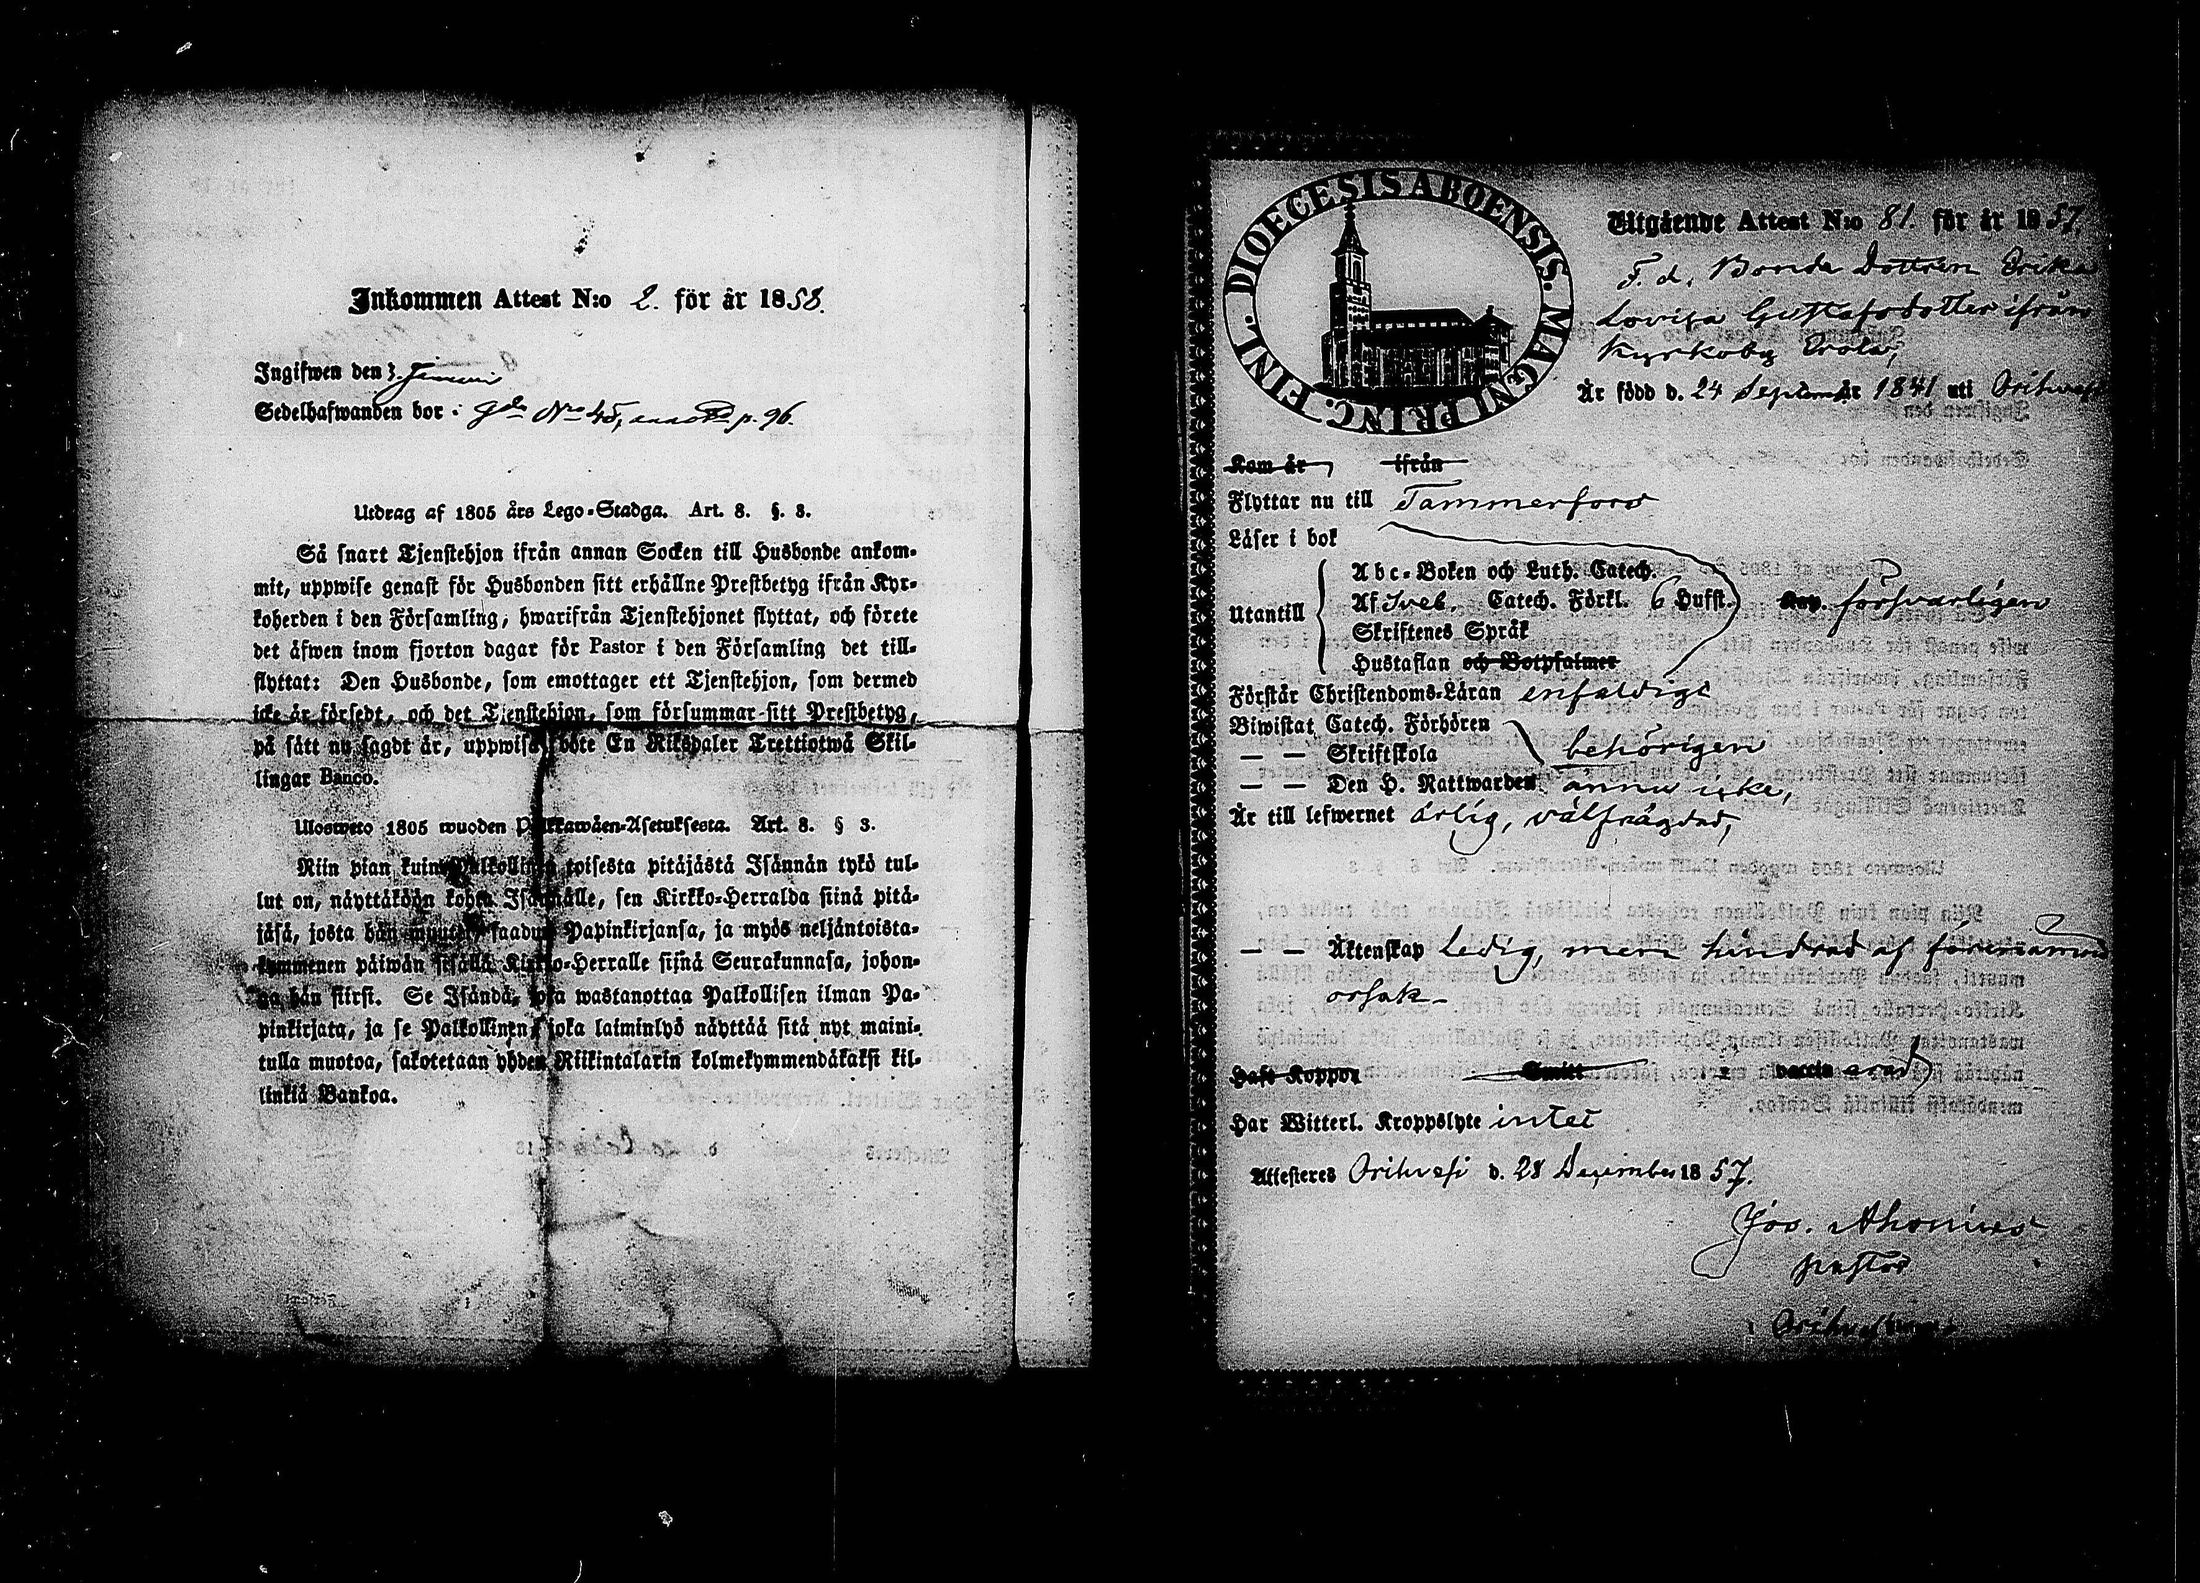 Inkommen Attest N:o 2. för år 1858.
Ingifwen den 3. Januari
Sedelhafwanden bor i gde No 45, annot. p. 96.
Utdrag af 1805 års Lego-Stadga. Art. 8. §. 3.
Så snart Tjenstehjon ifrån annan Socken till Husbonde ankom-
mit, uppwise genast för Husbonden sitt erhållne Prestbetyg ifrån Kyr-
koherden i den Församling, hwarifrån Tjenstehjonet flyttat, och förete
det äfwen inom fjorton dagar för Pastor i den Församling det till-
flyttat: Den Husbonde, som emottager ett Tjenstehjon, som dermed
icke är försedt, och det Tjenstehjon, som försummar sitt Prestbetyg,
på sätt nu sagdt är, uppwisa, böte En Riksdaler Trettiotwå Skil-
lingar Banco.
Ulosweto 1805 wuoden Palkkawäen-Asetuksesta. Art. 8. § 3.
Niin pian kuin Palkollinen toisesta pitäjästä Isännän tykö tul-
lut on, näyttäköön kohta Isännälle, sen Kirkko-Herralda siinä pitä-
jäsä, josta hän muutti, saadun Papinkirjansa, ja myös neljäntoista-
kymmenen päiwän sisällä Kirkko-Herralle siinä Seurakunnasa, johon-
ga hän siirsi. Se Isändä, joka wastanottaa Palkollisen ilman Pa-
pinkirjata, ja se Palkollinen, joka laiminlyö näyttää sitä nyt maini-
tulla muotoa, sakotetaan yhden Riikintalarin kolmekymmendäkaksi kil-
linkiä Bankoa.
DIOECESIS ABOENSIS. MAGNI PRINC. FINL.
Utgående Attest N:o 81. för år 1857.
F. d. Bonde Dottren Erika
Lovisa Gustafsdotter ifrån
Kyrkoby Erola,
Är född d. 24 September 1841 uti Orihvesi
Kom år ifrån
Flyttar nu till Tammerfors
Läser i bok
Utantill
Abc-Boken och Luth. Catech.
Af Sveb. Catech. Förkl. 6 Hufst. Kap. försvarligen
Skriftenes Språk
Hustaflan och Botpsalmer
Förstår Christendoms-Läran enfaldigt
Biwistat Catech. Förhören
— — Skriftskola behörigen
— — Den H. Nattwarden ännu icke,
Är till lefwernet ärlig, välfrägdad,
— — Äktenskap Ledig, men hindrad af förenämnd
orsak –
Haft Koppor Smitt vaccinerad
Har Witterl. Kroppslyte intet
Attesteres Orihvesi d. 28 December 1857.
Jos. Ahonius
pastor
i Orihvesi